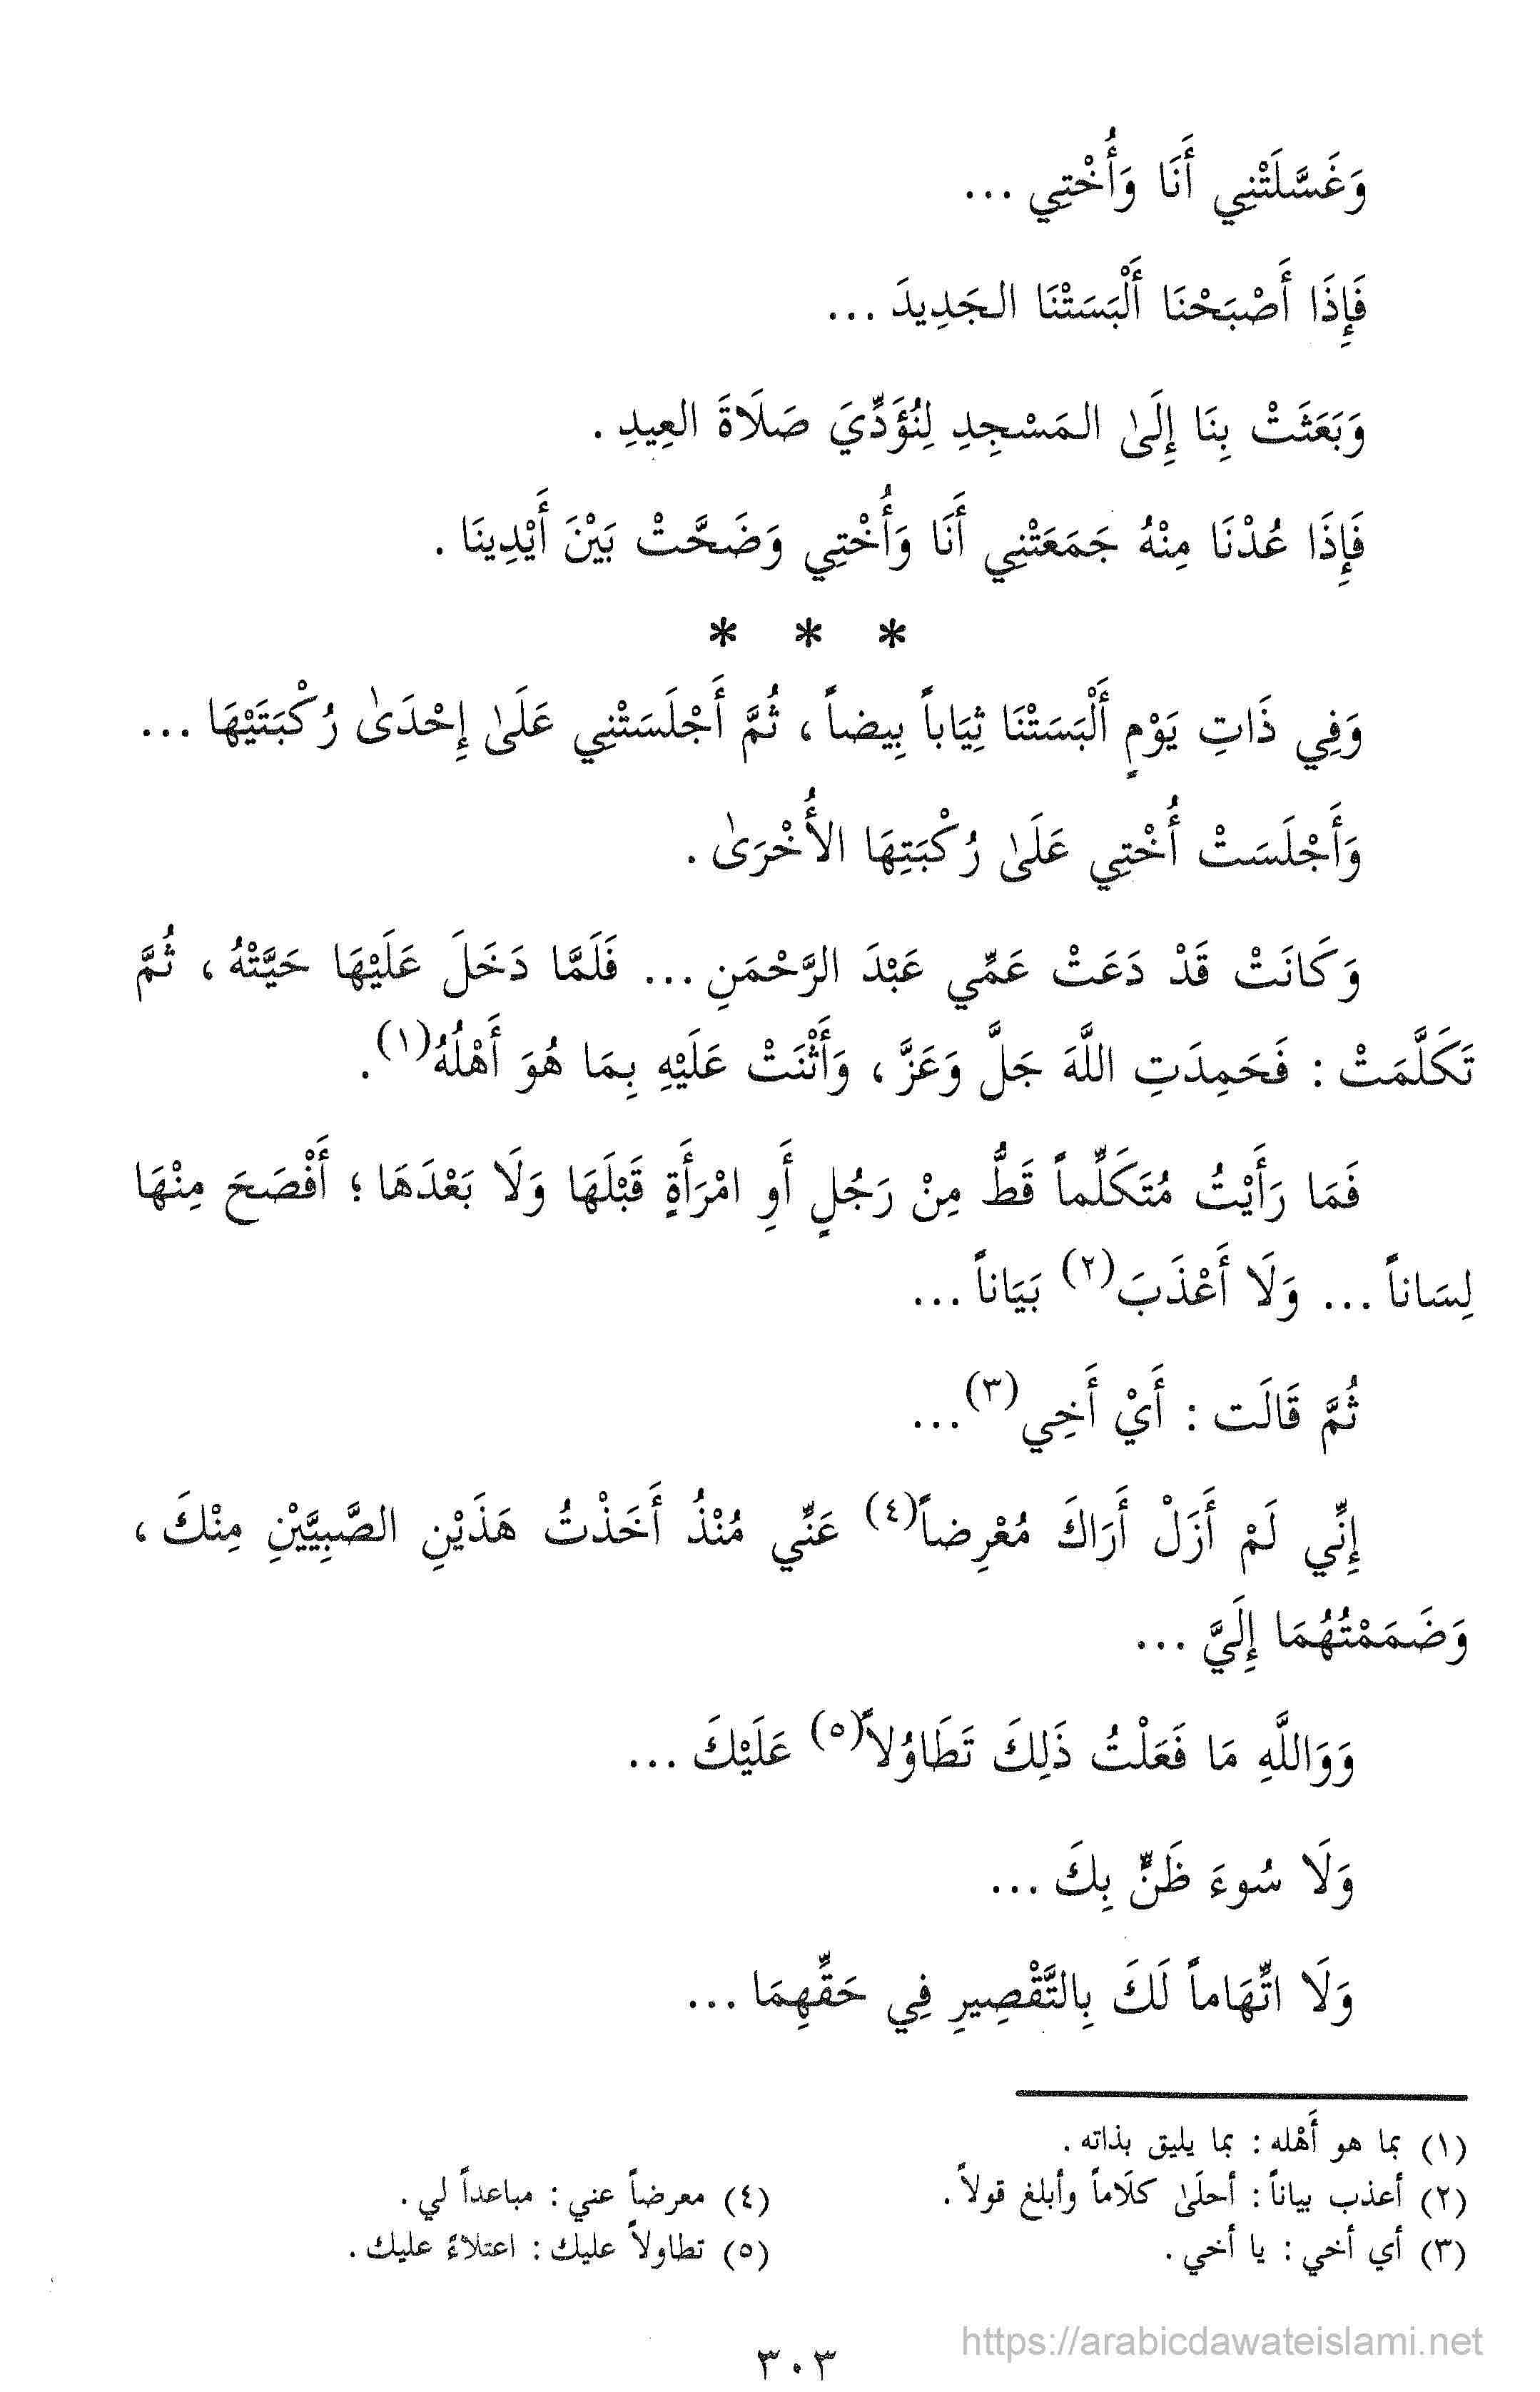 وَغَسَّلَتْنِي أَنَا وَأُخْتِي ...
فَإِذَا أَصْبَحْنَا أَلْبَسَتْنَا الجَدِيدَ ...
وَبَعَثَتْ بِنَا إِلَىٰ المَسْجِدِ لِنُؤَدِّيَ صَلَاةَ العِيدِ .
فَإِذَا عُدْنَا مِنْهُ جَمَعَتْنِي أَنَا وَأُخْتِي وَضَحَّتْ بَيْنَ أَيْدِينَا .
* * *
وَفِي ذَاتِ يَوْمٍ أَلْبَسَتْنَا ثِيَاباً بِيضاً ، ثُمَّ أَجْلَسَتْنِي عَلَىٰ إِحْدَىٰ رُكْبَتَيْهَا ...
وَأَجْلَسَتْ أُخْتِي عَلَىٰ رُكْبَتِهَا الأُخْرَىٰ .
وَكَانَتْ قَدْ دَعَتْ عَمِّي عَبْدَ الرَّحْمَنِ ... فَلَمَّا دَخَلَ عَلَيْهَا حَيَّتْهُ ، ثُمَّ
تَكَلَّمَتْ : فَحَمِدَتِ اللَّهَ جَلَّ وَعَزَّ ، وَأَثْنَتْ عَلَيْهِ بِمَا هُوَ أَهْلُهُ(١) .
فَمَا رَأَيْتُ مُتَكَلِّماً قَطُّ مِنْ رَجُلٍ أَوِ امْرَأَةٍ قَبْلَهَا وَلَا بَعْدَهَا ؛ أَفْصَحَ مِنْهَا
لِسَاناً ... وَلَا أَعْذَبَ(٢) بَيَاناً ...
ثُمَّ قَالَت : أَيْ أَخِي(٣) ...
إِنِّي لَمْ أَزَلْ أَرَاكَ مُعْرِضاً(٤) عَنِّي مُنْذُ أَخَذْتُ هَذَيْنِ الصَّبِيَّيْنِ مِنْكَ ،
وَضَمَمْتُهُمَا إِلَيَّ ...
وَوَاللَّهِ مَا فَعَلْتُ ذَلِكَ تَطَاوُلاً(٥) عَلَيْكَ ...
وَلَا سُوءَ ظَنٍّ بِكَ ...
وَلَا اتِّهَاماً لَكَ بِالتَّقْصِيرِ فِي حَقِّهِمَا ...
(١) بما هو أَهْله : بما يليق بذاته .
(٢) أعذب بياناً : أحلَىٰ كلَاماً وأبلغ قولاً .
(٣) أي أخي : يا أخي .
(٤) معرضاً عني : مباعداً لي .
(٥) تطاولاً عليك : اعتلاءً عليك .
٣٠٣
https://arabicdawateislami.net